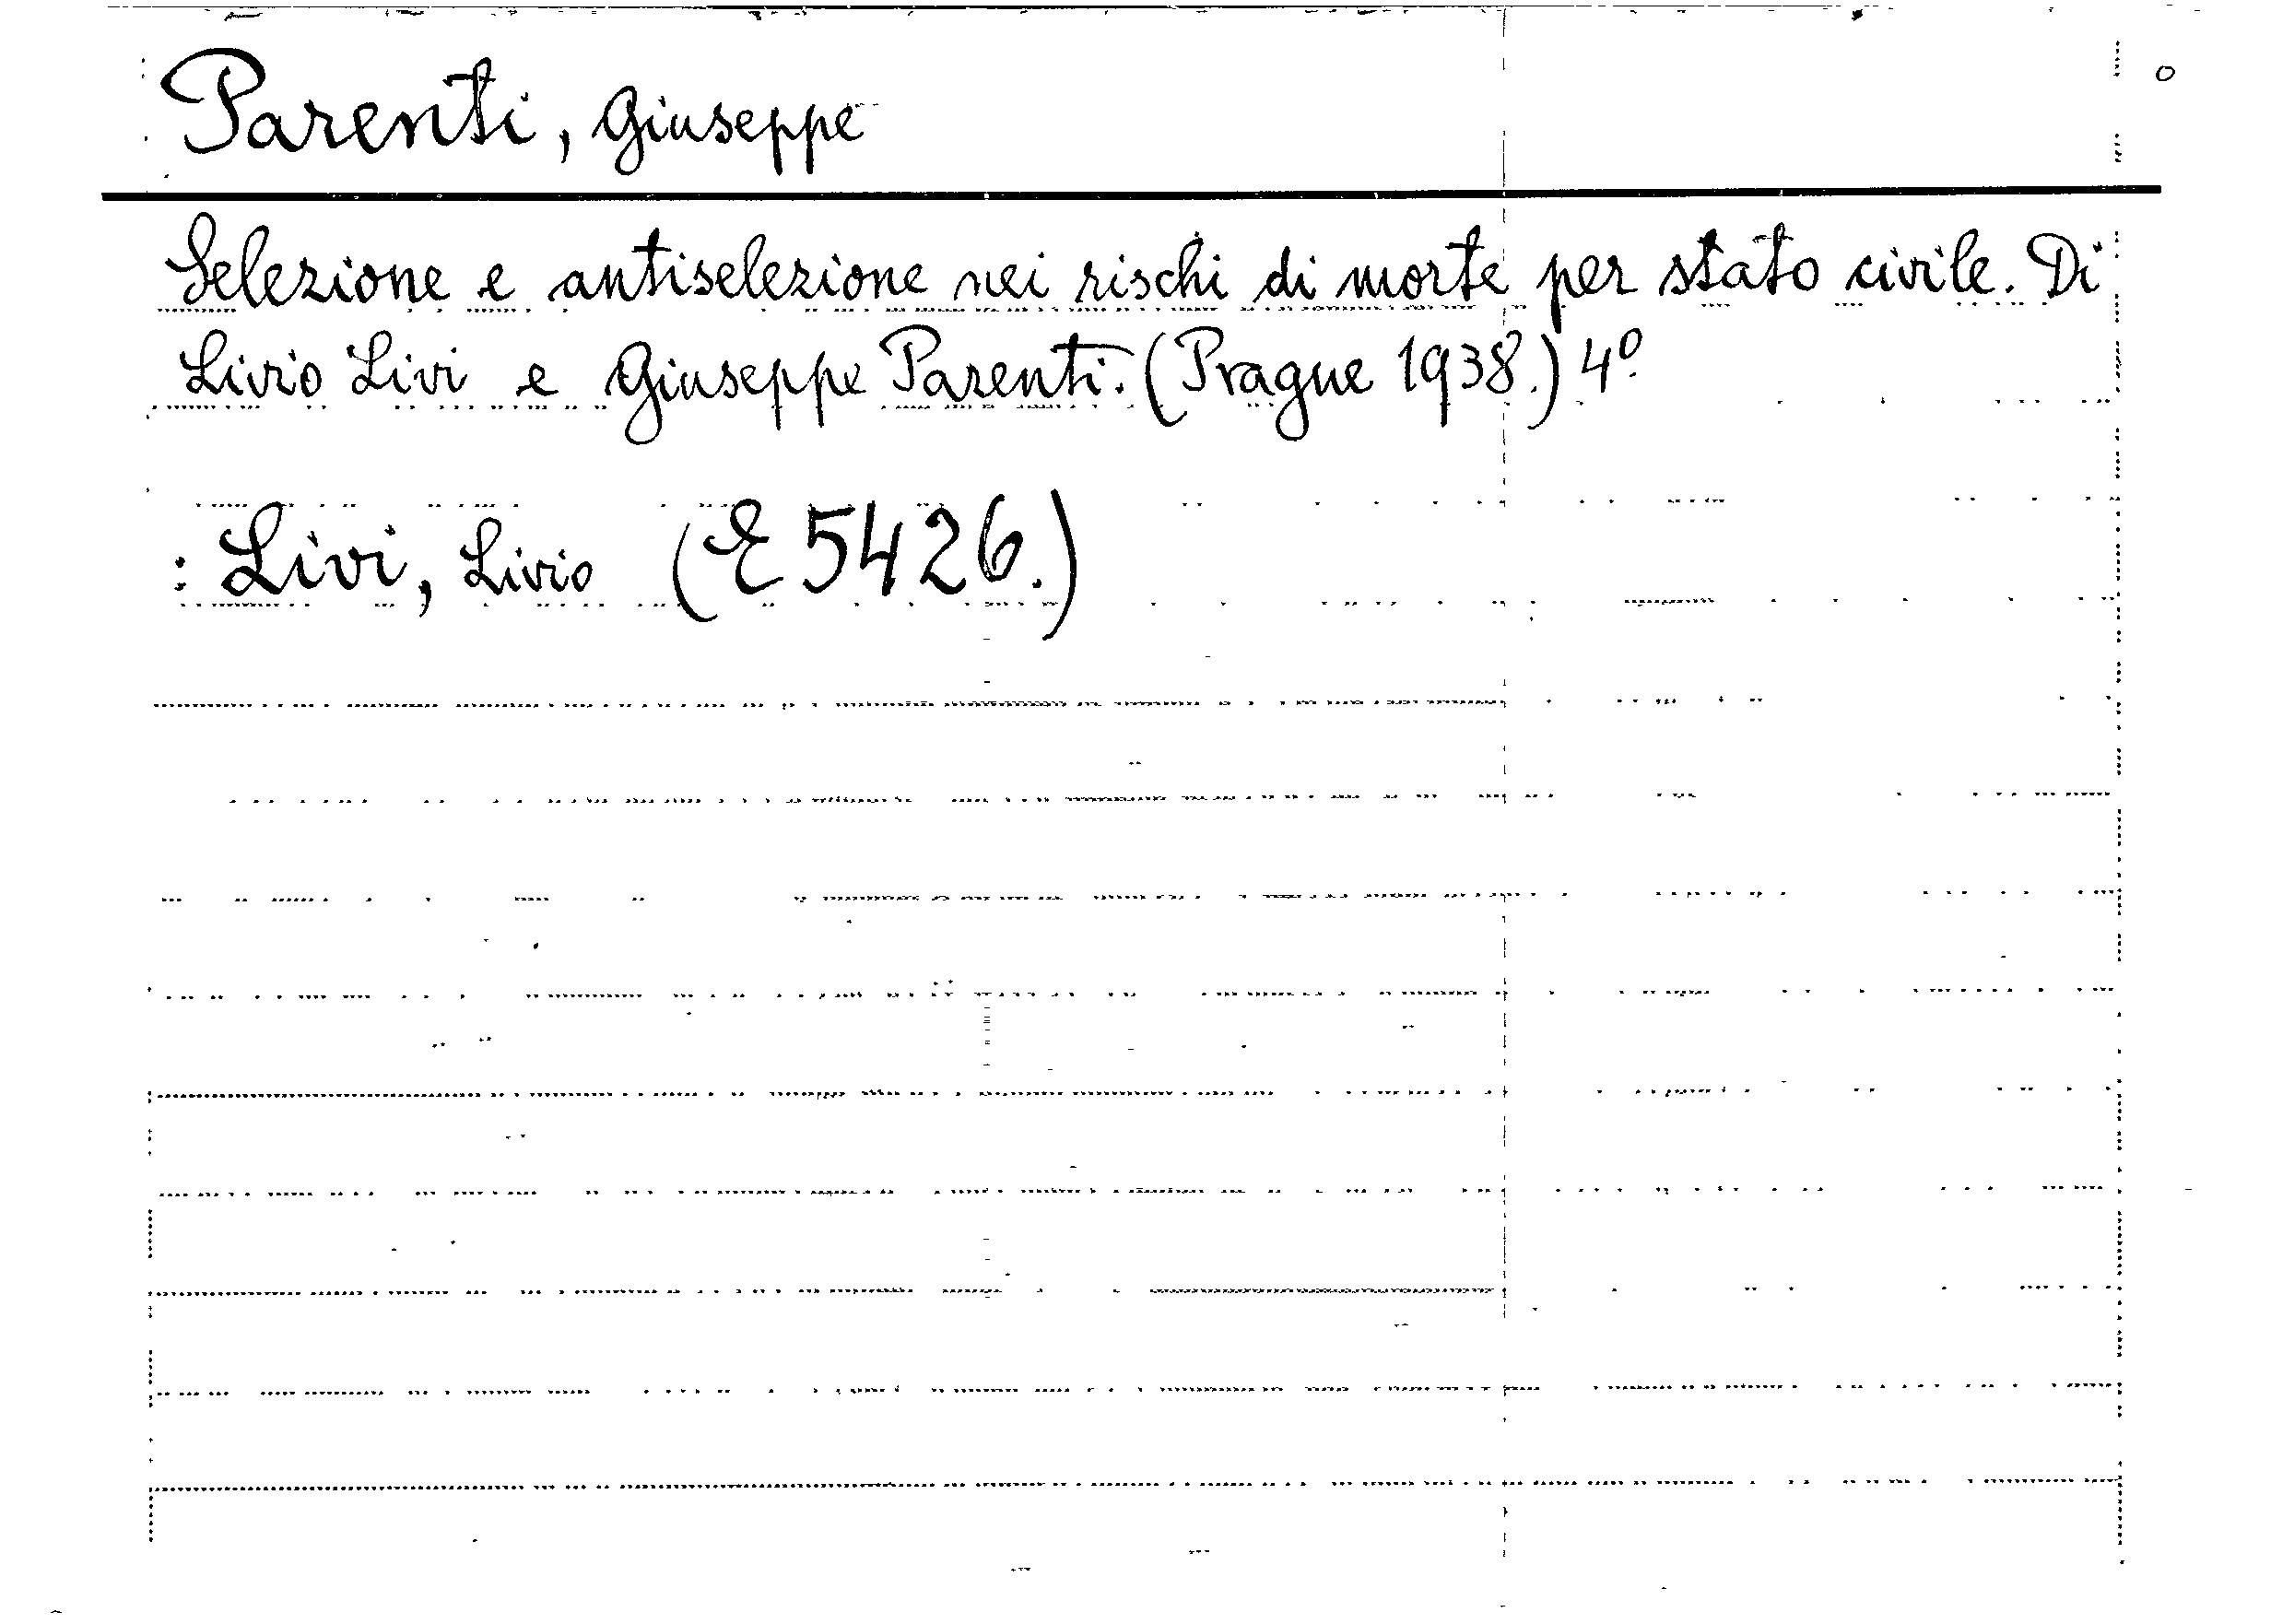 Parenti, Giuseppe
Selezione e antiselezione nei rischi di morte per stato civile. Di
Livio Livi e Giuseppe Parenti. (Prague 1938.) 4º.
: Livi, Livio (E 5426.)